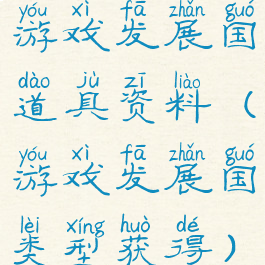 yóu xì fā zhǎn guó
游戏发展国
dào jù zī liào
道具资料（
yóu xì fā zhǎn guó
游戏发展国
lèi xíng huò dé
类型获得）